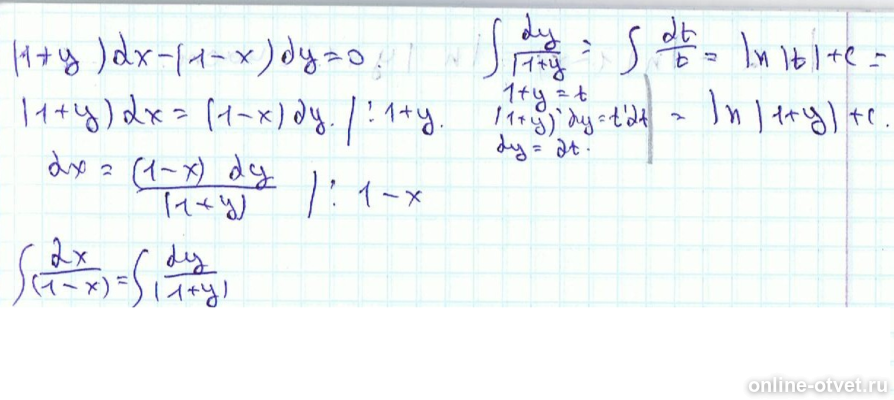 (1+y)dx-(1-x)dy=0
(1+y)dx = (1-x)dy. | : 1+y.
dx = (1-x) dy / (1+y) | : 1-x
∫ dx/(1-x) = ∫ dy/(1+y)
∫ dy/(1+y) = ∫ dt/t = ln|t|+c =
1+y=t
(1+y)'dy=t'dt
dy = dt.
= ln|1+y|+c.
online-otvet.ru